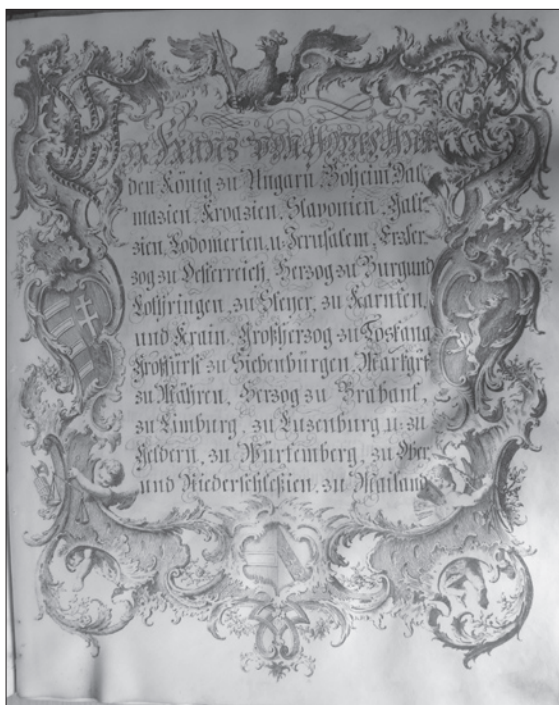 Wir Franz von Gottes Gna
den König zu Ungarn, Boheim Dal:
mazien, Kroazien, Slavonien, Gali
zien, Lodomerien, u. Jerusalem, Erzher:
zog zu Oesterreich, Herzog zu Burgund
Lothringen, zu Steyer, zu Karnten,
und Krain, Großherzog zu Toskana
Großfürst zu Siebenbürgen, Markgrf
zu Mähren, Herzog zu Brabant,
zu Limburg, zu Luzenburg u: zu
Geldern, zu Würtemberg, zu Ober
und Niederschlesien, zu Mailand